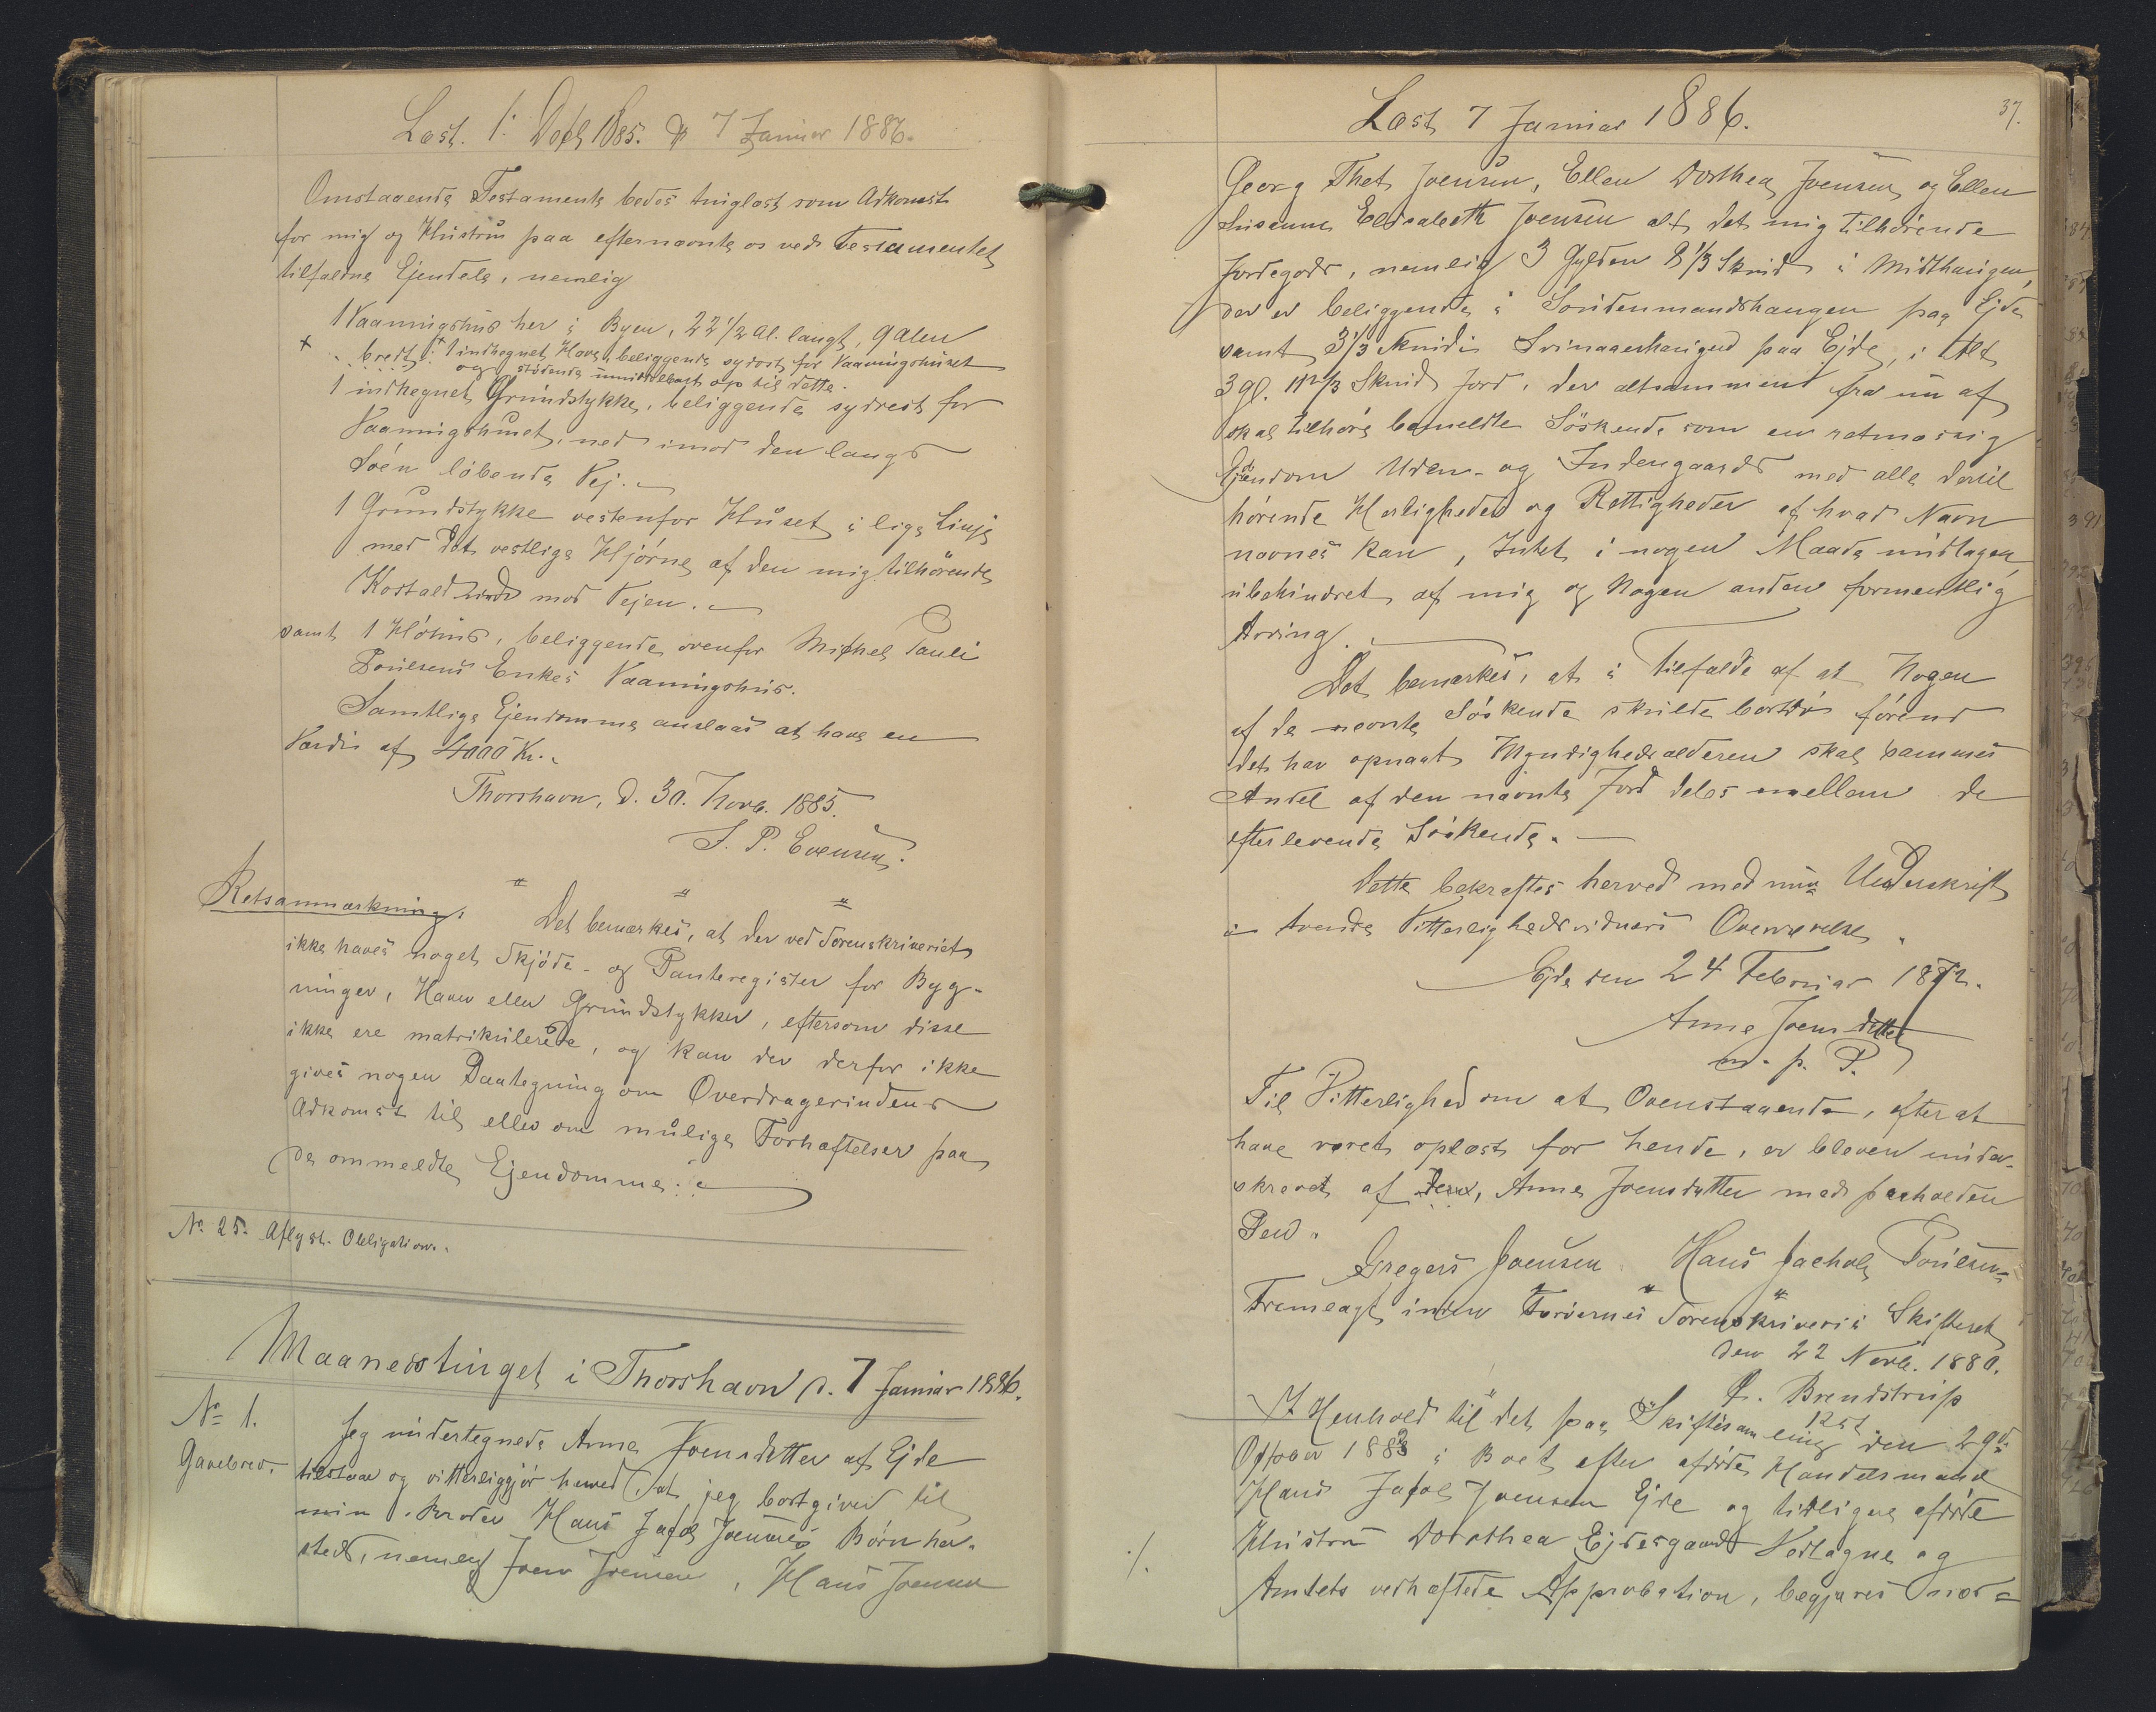 Læst. 1. Decb 1885. & 7 Januar 1886.
Omstaaende Testamente bedes tinglæst som Adkomst
for mig og Hustru paa efternævnte os ved Testamentet
tilfaldne Ejendele, nemlig
1 Vaaningshus her i Byen, 22 1/2 Al. langt, 9 Alen
+ bredt; + 1 indhegnet Have, beliggende sydost for Vaaningshuset
og stødende umiddelbart op til dette.
1 indhegnet Grundstykke, beliggende sydvest for
Vaaningshuset, ned imod den langs
Søen løbende Vej.
1 Grundstykke vestenfor Huset i lige Linje
med det vestlige Hjørne af den mig tilhørende
Kostald mod Vejen.
samt 1 Høhus, beliggende ovenfor Michel Pauli
Poulsens Enkes Vaaningshus.
Samtlige Ejendomme anslaas at have en
Værdi af 4000 Kr.
Thorshavn, d. 30. Novb. 1885.
S. P. Evensen.
" " "
Retsanmærkning: Det bemærkes, at der ved Sorenskriveriet
ikke haves noget Skjøde- og Panteregister for Byg-
ninger, Haver eller Grundstykker, eftersom disse
ikke ere matrikulerede, og kan der derfor ikke
gives nogen Paategning om Overdragerindens
Adkomst til eller om mulige Forhæftelser paa
de ommeldte Ejendomme.
No. 25. Aflyst. Obligation.
Maanedstinget i Thorshavn d. 7 Januar 1886.
No 1.
Gavebrev.
Jeg undertegnede Anne Joensdatter af Ejde
tilstaar og vitterliggjør herved, at jeg bortgiver til
min Broder Hans Jacob Joensens Børn her-
steds, nemlig Joen Joensen, Hans Joensen
37.
Læst 7 Januar 1886.
Georg Thet Joensen, Ellen Dorthea Joensen og Ellen
Susanne Elisabeth Joensen alt det mig tilhørende
Jordegods, nemlig 3 Gylden 8 1/3 Skind i Midthaugen,
der er beliggende i Sondenmandshaugen paa Ejde
samt 3 1/3 Skind i Svinaaerhaugen paa Ejde, i Alt
3 gl. 11 2/3 Skind Jord, der altsammen fra nu af
skal tilhøre bemeldte Söskende som en retmæssig
Ejendom Uden- og Indengaards med alle dertil
hørende Herligheder og Rettigheder af hvad Navn
nævnes kan, Intet i nogen Maade undtagen
ubehindret af mig og Nogen anden formentlig
Arving.
Det bemærkes, at i Tilfælde af at Nogen
af de nævnte Söskende skulde bortdø førend
det har opnaaet Myndighedsalderen skal sammes
Andel af den nævnte Jord deles mellem de
efterlevende Söskende.
Dette bekræftes herved med min Underskrift
i tvende Vitterlighedsvidners Overværelse.
Ejde den 24 Februar 1872.
Anne Joensdatter
m. f. P.
Til Vitterlighed om at Ovenstaaende, efter at
have været oplæst for hende, er bleven under-
skrevet af Anne Joensdatter med paaholden
Pen.
Gregers Joensen Hans Jachob Poulsen
" " "
Fremlagt inden Færøernes Sorenskriveris Skifteret
den 22 Novb. 1880.
L. Brendstrup
1251
I Henhold til det paa Skiftesamling den 29de
October 1883 i Boet efter afdøde Handelsmand
Hans Jacob Joensen Ejde og tidligere afdøde
Hustru Dorothea Ejdesgaard Vedtagne og
./. Amtets vedhæftede Approbation, begjæres nær-